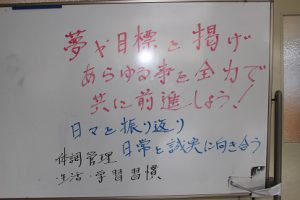 夢や目標を掲げ
あらゆる事を全力で
共に前進しよう!
日々を振り返り
日常と誠実に向き合う
体調管理
生活・学習習慣